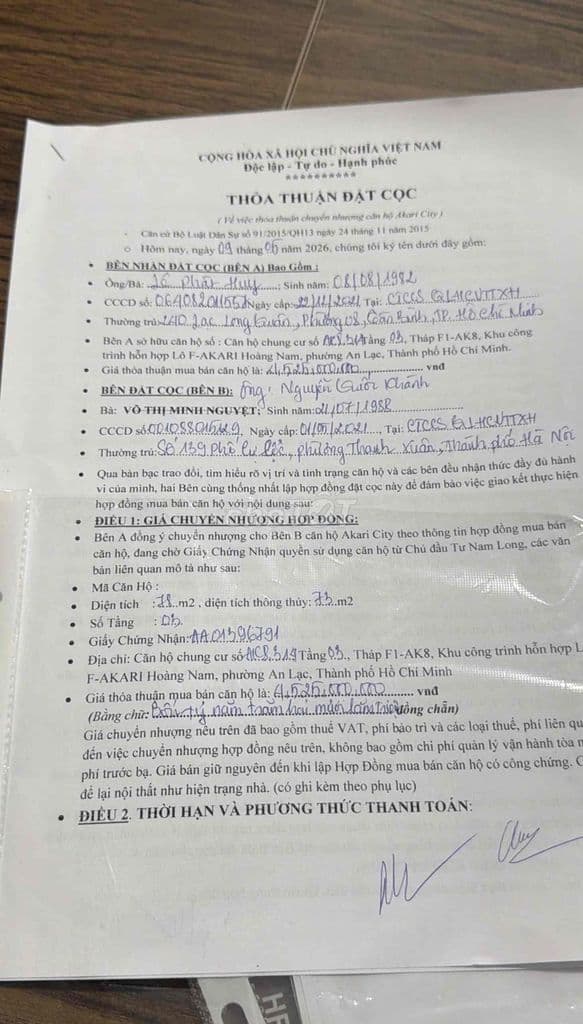 CỘNG HÒA XÃ HỘI CHỦ NGHĨA VIỆT NAM
Độc lập - Tự do - Hạnh phúc
**********
THỎA THUẬN ĐẶT CỌC
( Về việc thỏa thuận chuyển nhượng căn hộ Akari City )
- Căn cứ Bộ Luật Dân Sự số 91/2015/QH13 ngày 24 tháng 11 năm 2015
o Hôm nay, ngày 09 tháng 05 năm 2026, chúng tôi ký tên dưới đây gồm:
• BÊN NHẬN ĐẶT CỌC (BÊN A) Bao Gồm :
• Ông/Bà: Phát Huy; Sinh năm: 08/08/1982
• CCCD số: Ngày cấp: 22/11/2021 Tại: CTCCS QLHCVTTXH
• Thường trú: 240 Lạc Long Quân, Phường 08, Tân Bình, TP. Hồ Chí Minh
• Bên A sở hữu căn hộ số : Căn hộ chung cư số Tầng 03, Tháp F1-AK8, Khu công
trình hỗn hợp Lô F-AKARI Hoàng Nam, phường An Lạc, Thành phố Hồ Chí Minh.
• Giá thỏa thuận mua bán căn hộ là: 4,525,000,000 vnđ
• BÊN ĐẶT CỌC (BÊN B): Ông: Nguyễn Quốc Khánh
• Bà: VÕ THỊ MINH NGUYỆT; Sinh năm: 21/07/1988
• CCCD số: Ngày cấp: 01/05/2021, Tại: CTCCS QLHCVTTXH
• Thường trú: Số 139 Phố Cự Lộc, phường Thanh Xuân, Thành phố Hà Nội
• Qua bàn bạc trao đổi, tìm hiểu rõ vị trí và tình trạng căn hộ và các bên đều nhận thức đầy đủ hành
vi của mình, hai Bên cùng thống nhất lập hợp đồng đặt cọc này để đảm bảo việc giao kết thực hiện
hợp đồng mua bán căn hộ với nội dung sau:
• ĐIỀU 1: GIÁ CHUYỂN NHƯỢNG HỢP ĐỒNG:
• Bên A đồng ý chuyển nhượng cho Bên B căn hộ Akari City theo thông tin hợp đồng mua bán
căn hộ, đang chờ Giấy Chứng Nhận quyền sử dụng căn hộ từ Chủ đầu Tư Nam Long, các văn
bản liên quan mô tả như sau:
• Mã Căn Hộ :
• Diện tích : 78 m2 , diện tích thông thủy: 73 m2
• Số Tầng : 03
• Giấy Chứng Nhận: AA01396791
• Địa chỉ: Căn hộ chung cư số AK8.3.19 Tầng 03, Tháp F1-AK8, Khu công trình hỗn hợp L
F-AKARI Hoàng Nam, phường An Lạc, Thành phố Hồ Chí Minh
• Giá thỏa thuận mua bán căn hộ là: 4,525,000,000 vnđ
(Bằng chữ: Bốn tỷ năm trăm hai mươi lăm triệu đồng chẵn)
Giá chuyển nhượng nêu trên đã bao gồm thuế VAT, phí bảo trì và các loại thuế, phí liên qu
đến việc chuyển nhượng hợp đồng nêu trên, không bao gồm chi phí quản lý vận hành tòa n
phí trước bạ. Giá bán giữ nguyên đến khi lập Hợp Đồng mua bán căn hộ có công chứng. C
để lại nội thất như hiện trạng nhà. (có ghi kèm theo phụ lục)
• ĐIỀU 2. THỜI HẠN VÀ PHƯƠNG THỨC THANH TOÁN: